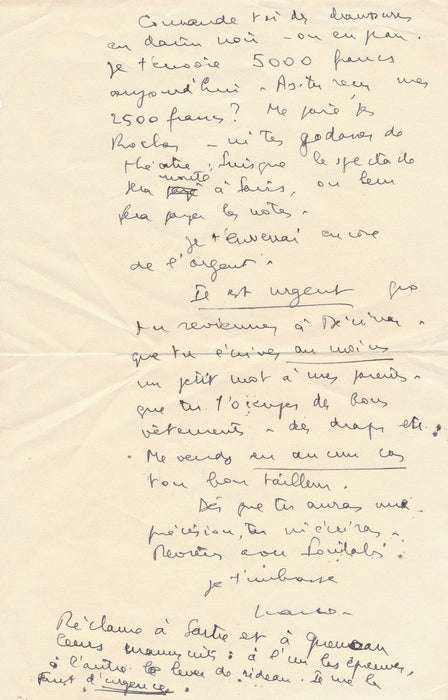 Commande toi des chaussures
en daim noir - ou en
Je t'envoie 5000 francs
aujourd'hui - As-tu reçu mes
2500 francs? Ne paie pas
Rochas - ni tes godasses de
théâtre; puisque le spectacle
sera monté à Paris, on leur
fera payer les notes.
Je t'enverrai encore
de l'argent.
Il est urgent que
tu reviennes à
que tu écrives au moins
un petit mot à mes parents.
que tu t'occupes de bons
vêtements - des draps etc.
Ne vends en aucun cas
ton bon tailleur.
Dès que tu auras une
précision, tu m'écriras.
Reviens avec
Je t'embrasse
Réclame à Sartre et à
leurs manuscrits: à l'un les épreuves,
à l'autre le lever de rideau. Il me les
faut d'urgence.